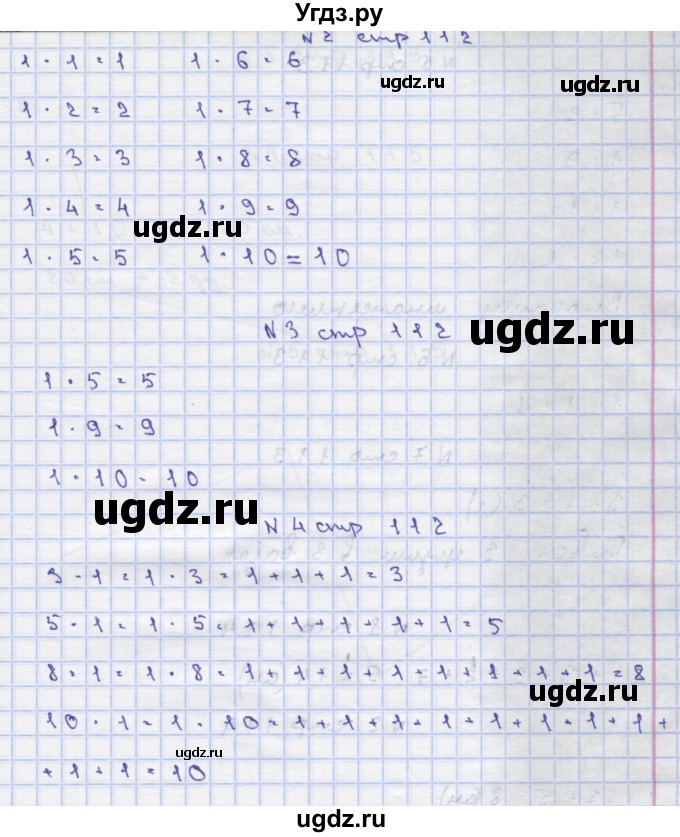 Угдз.ру
N2 стр 112
1 · 1 = 1 1 · 6 = 6
ugdz.ru
1 · 2 = 2 1 · 7 = 7
1 · 3 = 3 1 · 8 = 8
1 · 4 = 4 1 · 9 = 9
ugdz.ru
1 · 5 = 5 1 · 10 = 10
N3 стр 112
ugdz.ru
1 · 5 = 5
1 · 9 = 9
1 · 10 = 10
ugdz.ru
N4 стр 112
3 · 1 = 1 · 3 = 1 + 1 + 1 = 3
5 · 1 = 1 · 5 = 1 + 1 + 1 + 1 + 1 = 5
8 · 1 = 1 · 8 = 1 + 1 + 1 + 1 + 1 + 1 + 1 + 1 = 8
ugdz.ru
10 · 1 = 1 · 10 = 1 + 1 + 1 + 1 + 1 + 1 + 1 + 1 +
ugdz.ru
+ 1 + 1 = 10
ugdz.ru